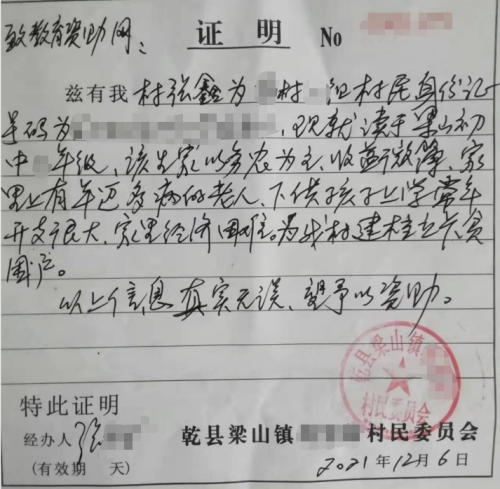 致教育资助网：
证 明 No
兹有我 村张鑫为 村 组村民身份证
号码为 ，现就读于梁山初
中 年级，该生家以务农为主，收益微薄、家
里上有年迈多病的老人、下供孩子上学常年
开支很大、家里经济困难。为我村建档立卡贫
困户。
以上信息真实无误、望予以资助。
乾县梁山镇
村民委员会
特此证明
经办人 张
乾县梁山镇 村民委员会
(有效期 天)
2021年12月6日